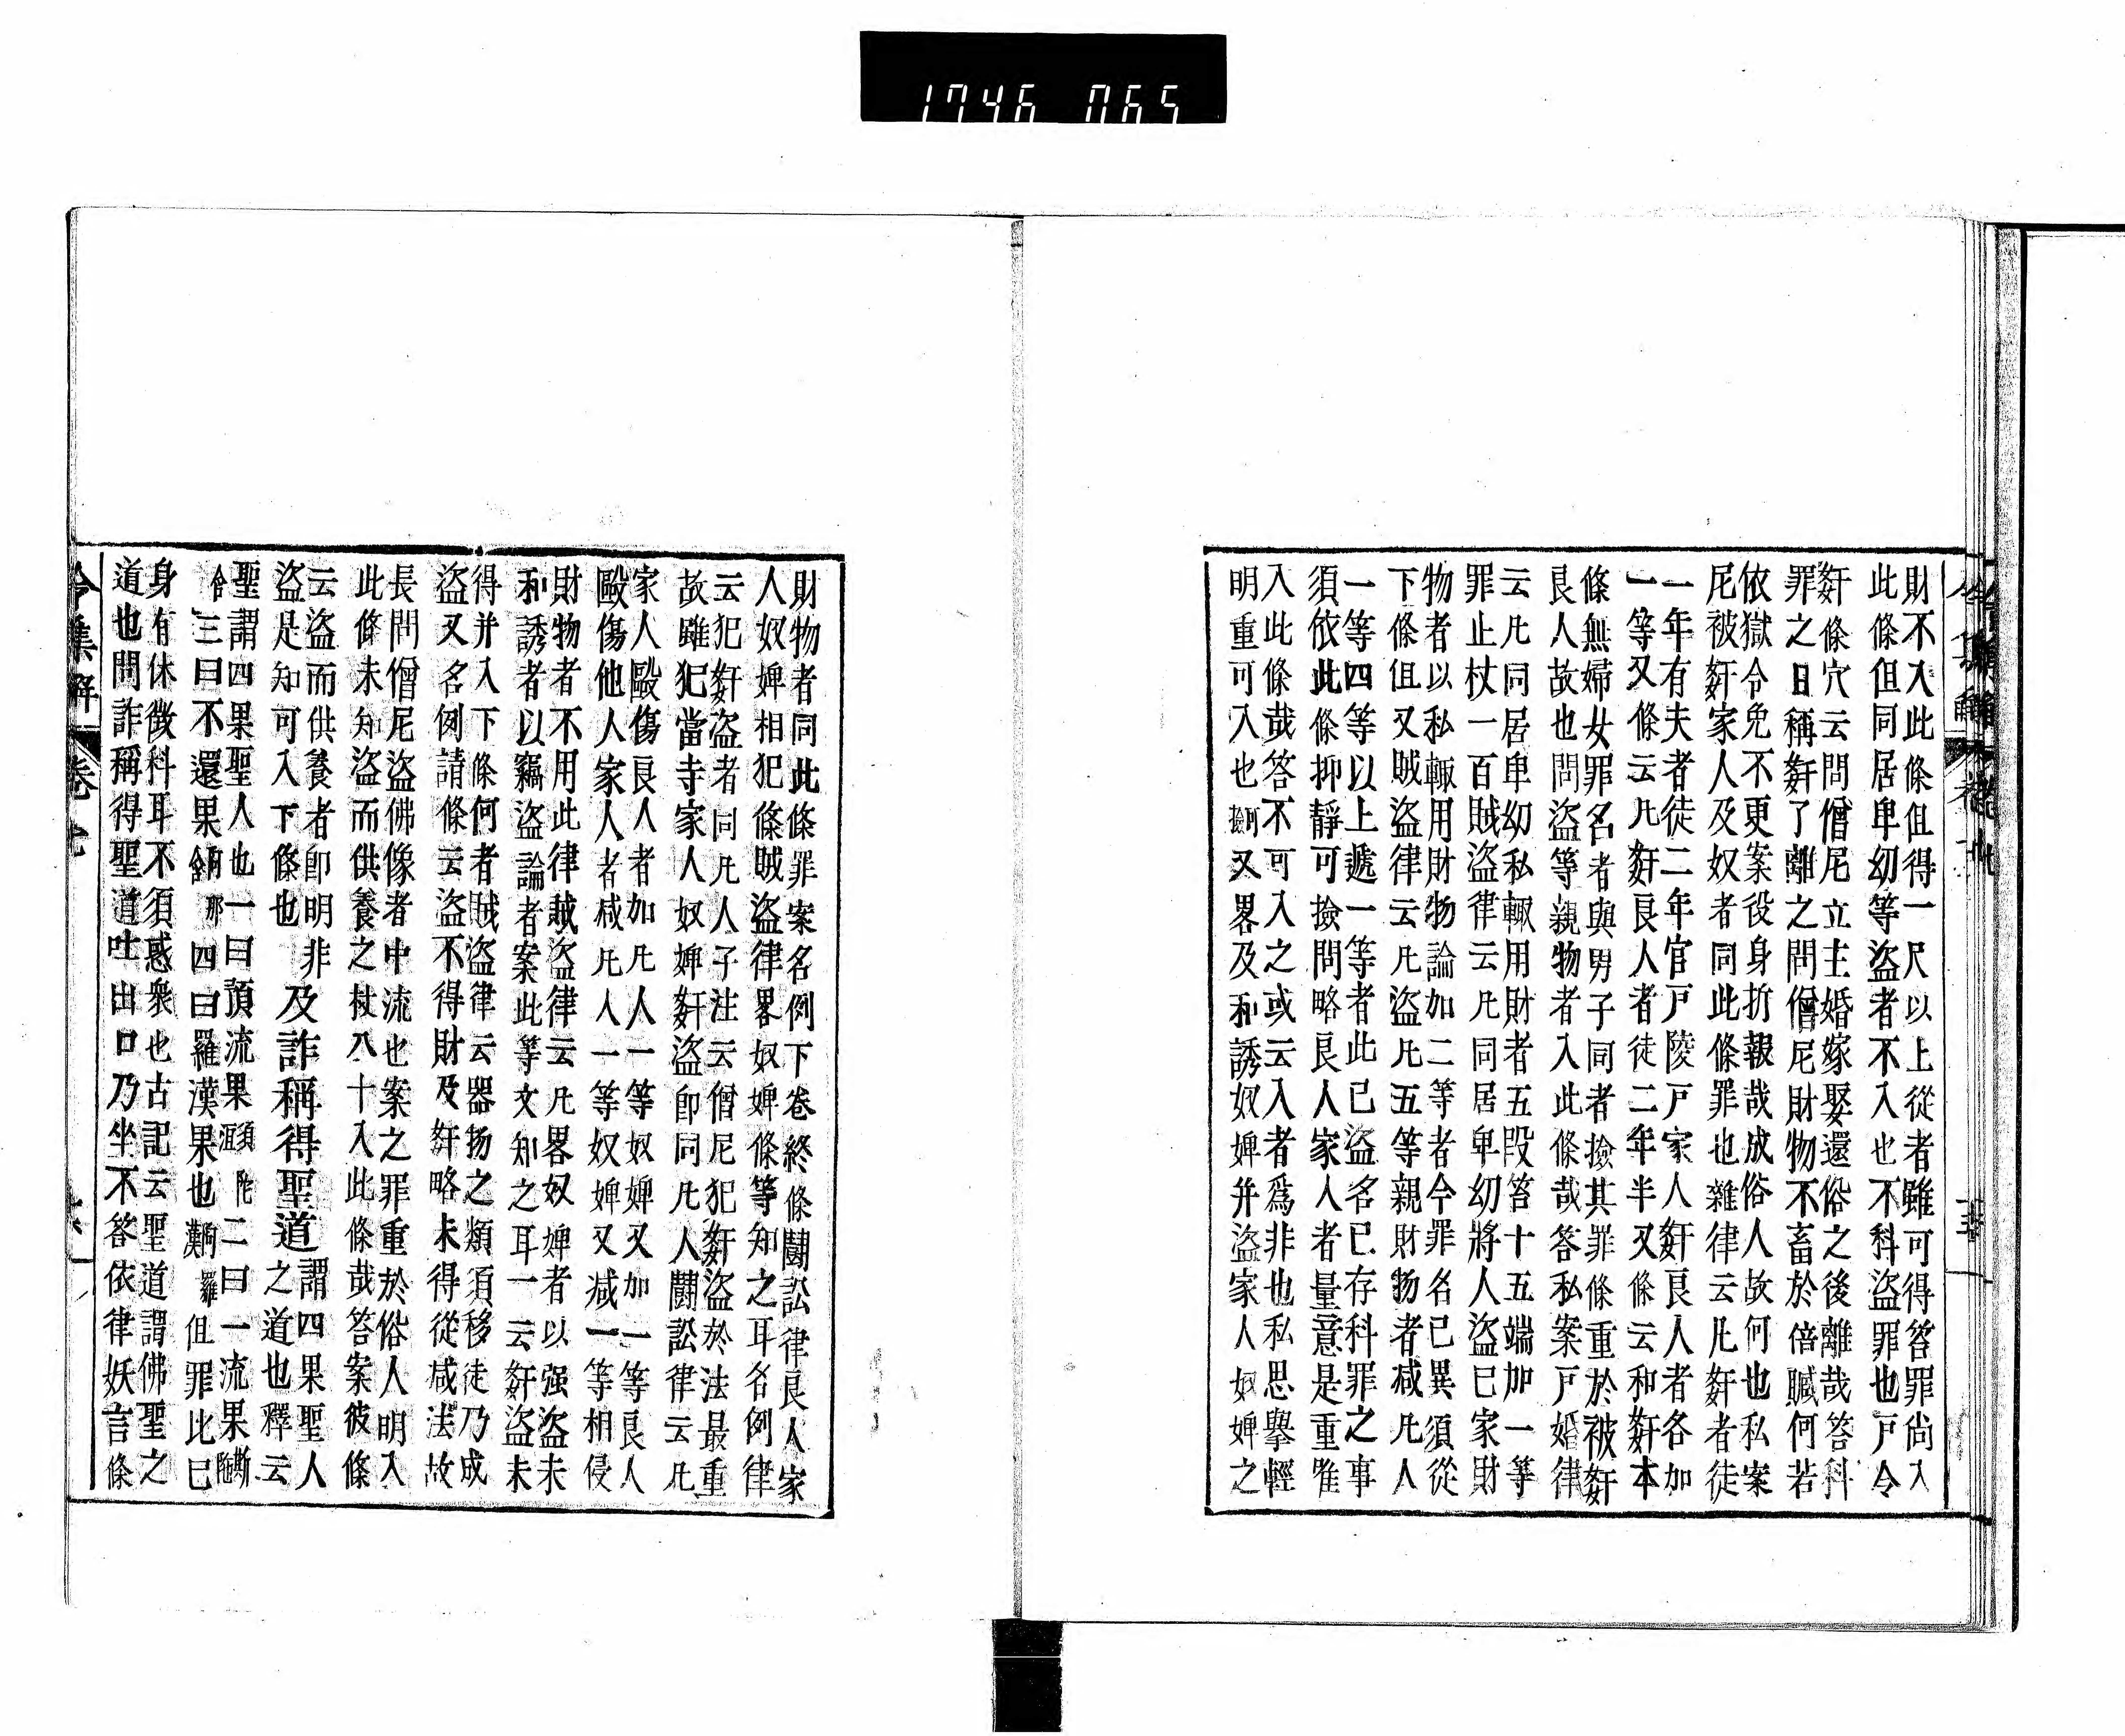 1746 065
財不入此條但得一尺以上從者雖可得笞罪尚入
此條但同居卑幼等盗者不入也不科盗罪也戸令
姧條穴云問僧尼立主婚嫁娶還俗之後離哉答科
罪之日稱姧了離之問僧尼財物不畜於倍贓何若
依獄令免不更案役身折報哉成俗人故何也私案
尼被姧家人及奴者同此條罪也雜律云凡姧者徒
一年有夫者徒二年官戸陵戸家人姧良人者各加
一等又條云凡姧良人者徒二年半又條云和姧本
條無婦女罪名者與男子同者撿其罪條重於被姧
良人故也問盗等親物者入此條哉答私案戸婚律
云凡同居卑幼私輙用財者五段笞十五端加一等
罪止杖一百賊盗律云凡同居卑幼將人盗己家財
物者以私輙用財物論加二等者今罪名已異須從
下條但又賊盗律云凡盗凡五等親財物者减凡人
一等四等以上遞一等者此已盗名已存科罪之事
須依此條抑靜可撿問略良人家人者量意是重唯
入此條哉答不可入之或云入者爲非也私思擧輕
明重可入也撿可又畧及和誘奴婢并盗家人奴婢之
財物者同此條罪案名例下卷終條鬪訟律良人家
人奴婢相犯條賊盗律畧奴婢條等知之耳名例律
云犯姧盗者同凡人子注云僧尼犯姧盗於法最重
故雖犯當寺家人奴婢姧盗即同凡人鬪訟律云凡
家人毆傷良人者加凡人一等奴婢又加一等良人
毆傷他人家人者减凡人一等奴婢又减一等相侵
財物者不用此律賊盗律云凡畧奴婢者以强盗未
和誘者以竊盗論者案此等文知之耳一云姧盗未
得并入下條何者賊盗律云器扬之類須移徒乃成
盗又名例請條云盗不得財及姧略未得從减法故
長問僧尼盗佛像者中流也案之罪重於俗人明入
此條未知盗而供養之杖八十入此條哉答案彼條
云盗而供養者即明非
盗是知可入下條也
及詐稱得聖道
謂四果聖人
之道也釋云
聖謂四果聖人也一曰預流果須陀洹二曰一流果斯陀
含三曰不還果阿那含四曰羅漢果也阿羅漢但罪比已
身有休徴科耳不須惑衆也古記云聖道謂佛聖之
道也問詐稱得聖道吐出口乃坐不答依律妖言條